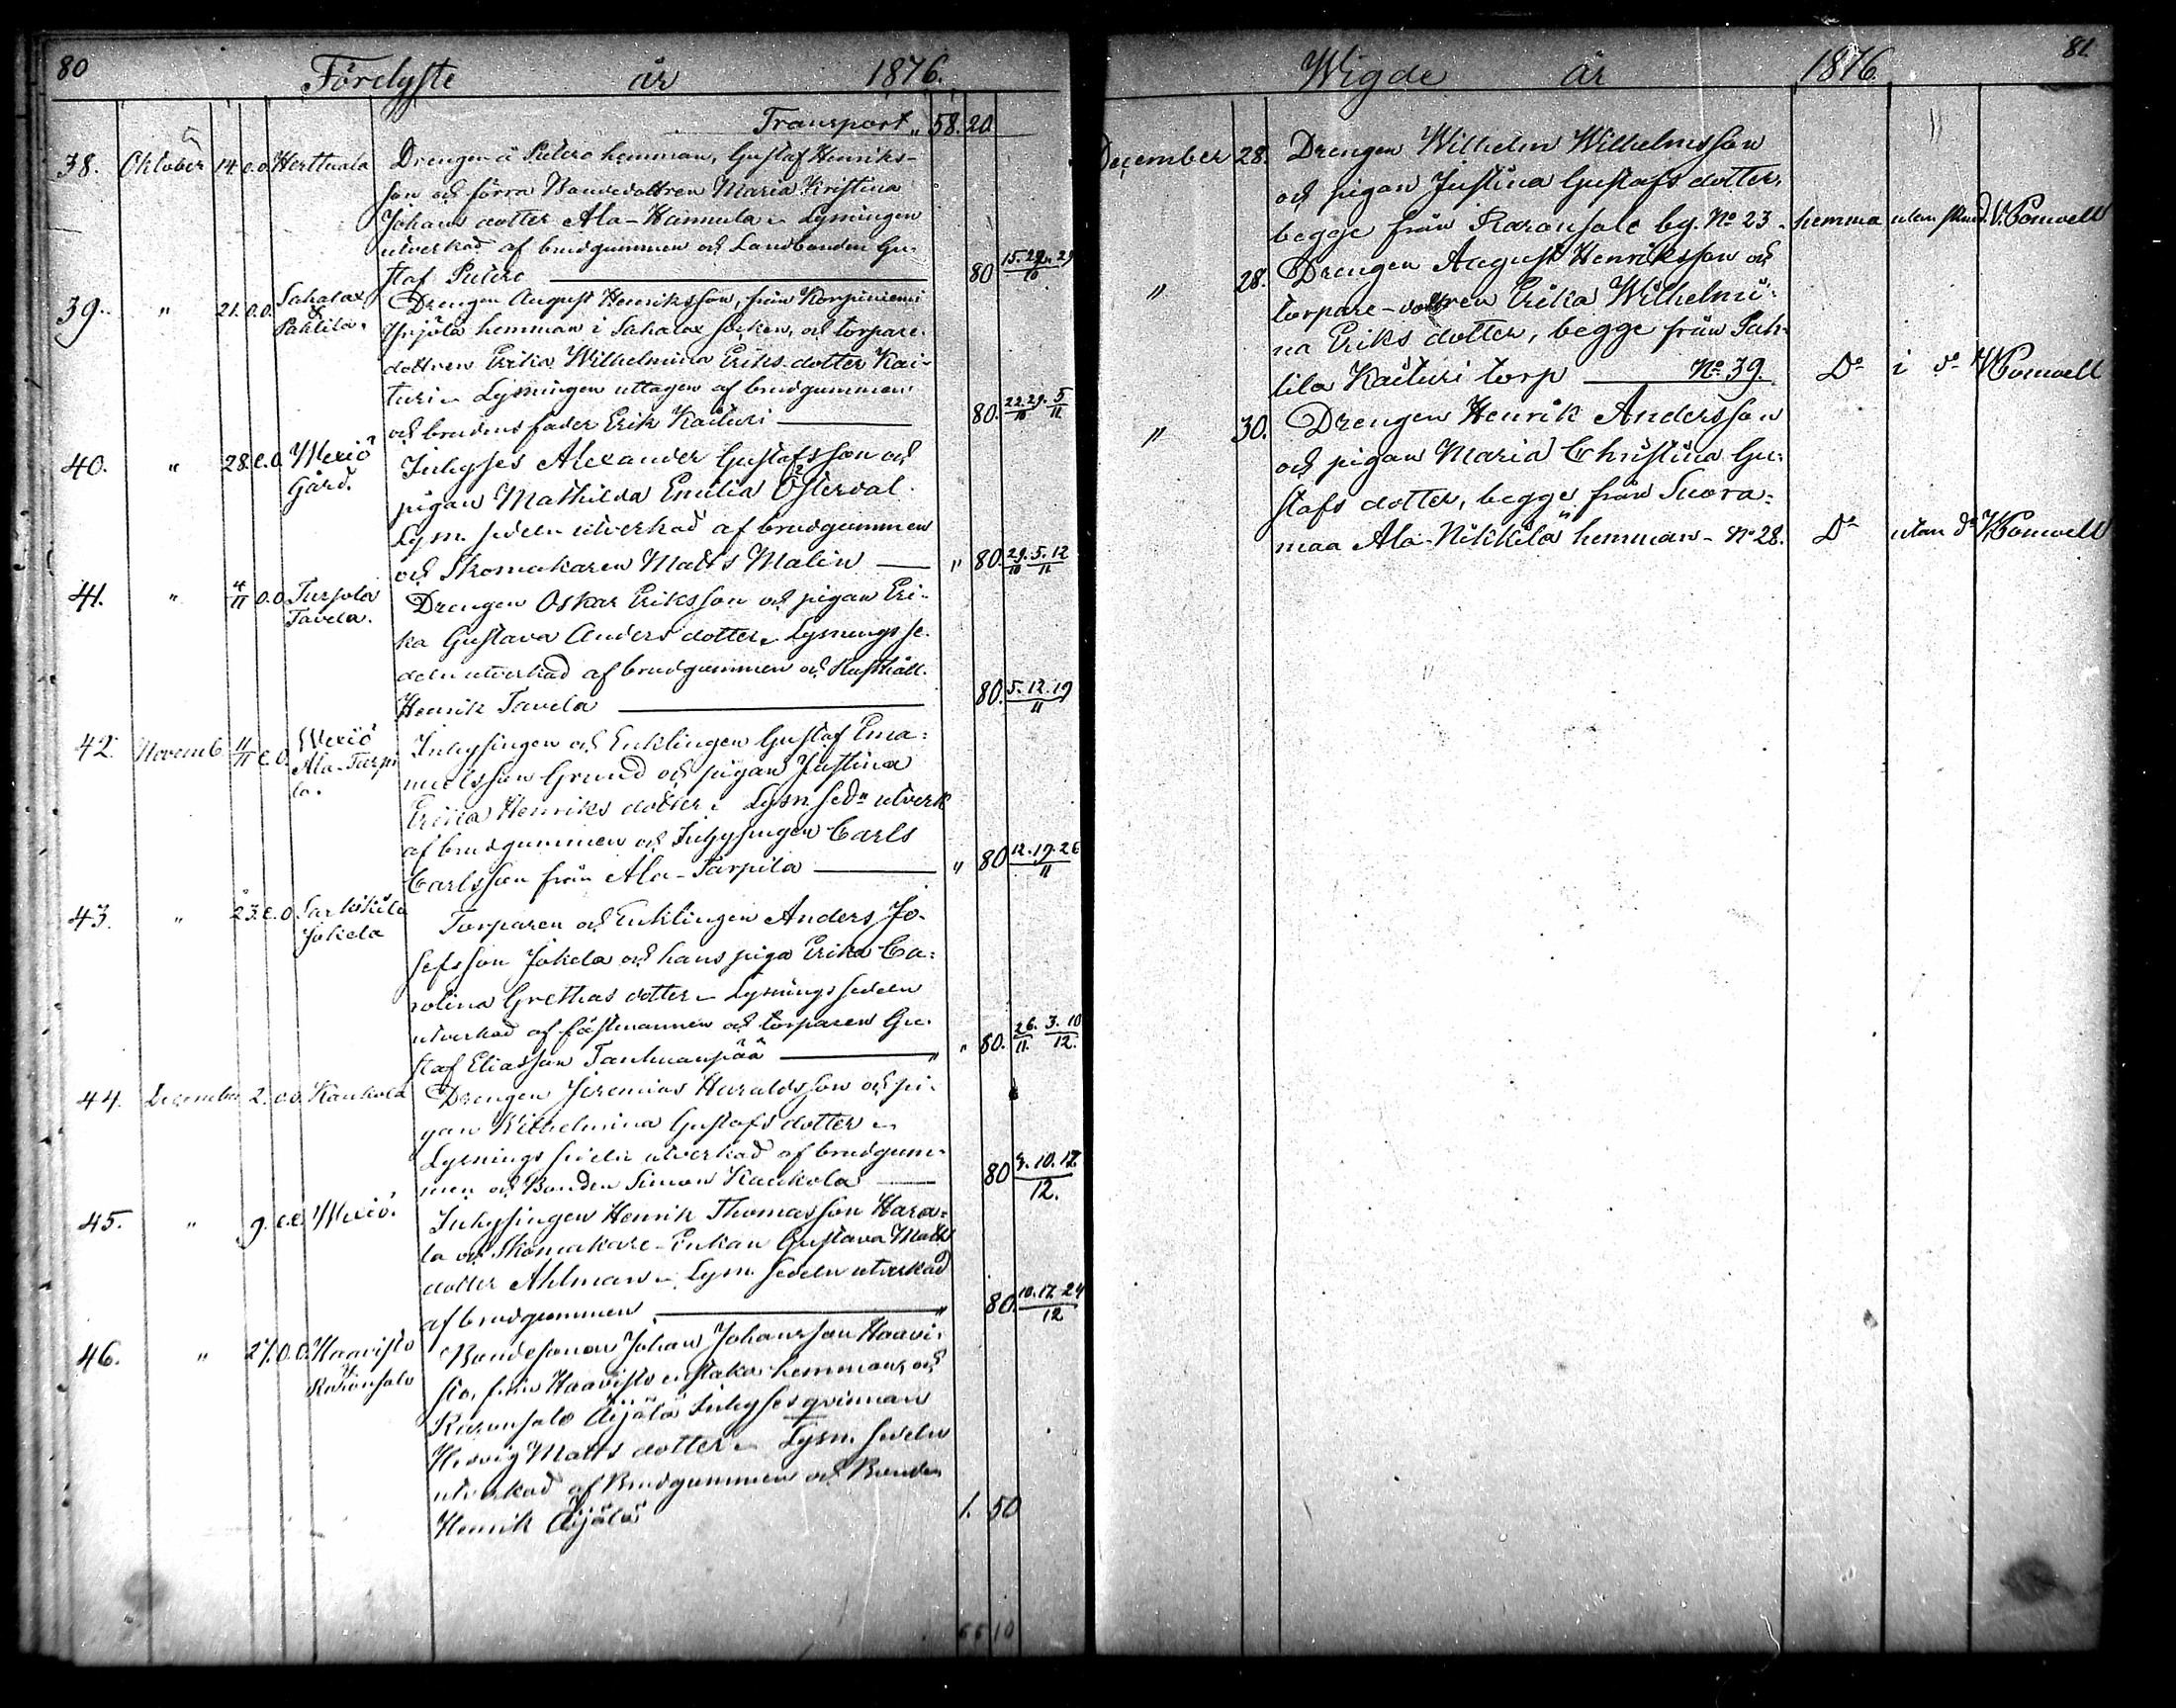 80
Förelyste år 1876.
Transport „ 58. 20
38. Oktober 14. o.o. Herttuala Drengen å Putero hemman, Gustaf Henriks-
son och förra Bondedottren Maria Kristina
Johans dotter Ala-Hannula. Lysningen
utverkad af brudgummen och Landbonden Gu-
staf Putero 80 15. 22. 29/10
39. „ 21. o.o. Sahalax & Pahlila. Drengen August Henriksson, från Korpiniemi
Yrjölä hemman i Sahalax socken, och torpare-
dottren Erika Wilhelmina Eriks dotter Kai-
turi. Lysningen uttagen af brudgummen
och brudens fader Erik Kaituri 80. 22. 29/10 5/11
40. „ 28. e.o. Wexiö Gård. Inhyses Alexander Gustafsson och
pigan Mathilda Emilia Österdal.
Lysn. sedeln utverkad af brudgummen
och Skomakaren Matts Malin „ 80. 29/10 5. 12/11
41. „ 4/11 o.o. Turpola Tavela. Drengen Oskar Eriksson och pigan Eri-
ka Gustava Anders dotter. Lysningsse-
deln utverkad af brudgummen och Rusthåll.
Henrik Tavela 80. 5. 12. 19/11
42. Novemb. 11/11 e.o. Wexiö Ala-Tarpi la. Inhysingen och Enklingen Gustaf Ema-
nuelsson Grund och pigan Justina
Erika Henriks dotter. Lysn. sedn utverk
af brudgummen och Inhysingen Carls
Carlsson från Ala-Tarpila „ 80 12. 19. 26/11
43. „ 23. e.o. Sarkikilä Jokela Torparen och Enklingen Anders Jo-
sefsson Jokela och hans piga Erika Ca-
rolina Grethas dotter. Lysnings sedeln
utverkad af fästmannen och torparen Gu-
staf Eliasson Tanhuanpää „ 80. 26/11. 3. 10/12.
44. December 2. o.o. Kaukola Drengen Jeremias Haraldsson och pi-
gan Wilhelmina Gustafs dotter.
Lysnings sedeln utverkad af brudgum-
men och Bonden Simon Kaukola 80 3. 10. 17/12.
45. „ 9. e.e. Wexiö. Inhysingen Henrik Thomasson Hara-
la och Skomakare-Enkan Gustava Matts
dotter Ahlman. Lysn. sedeln utverkad
af brudgummen 80. 10. 17. 24/12
46. „ 27. o.o. Haavisto & Karonsalo Bondesonen Johan Johansson Haavi-
sto, från Haavisto enstaka hemman, och
Karonsalo Äijälä Inhysesqvinnan
Hedvig Matts dotter. Lysn. sedeln
utverkad af Brudgummen och Bonden
Henrik Äijälä 1. 50
66 10
81.
Wigde år 1876.
December 28. Drengen Wilhelm Wilhelmsson
och pigan Justina Gustafs dotter,
begge från Karonsalo by. No 23. hemma utan
„ 28. Drengen August Henriksson och
torpare-dottren Erika Wilhelmi-
na Eriks dotter, begge från Pah-
lila Kaituri torp No 39. Do i do
„ 30. Drengen Henrik Andersson
och pigan Maria Christina Gu-
stafs dotter, begge från Suora-
maa Ala-Nikkilä hemman No 28. Do utan do